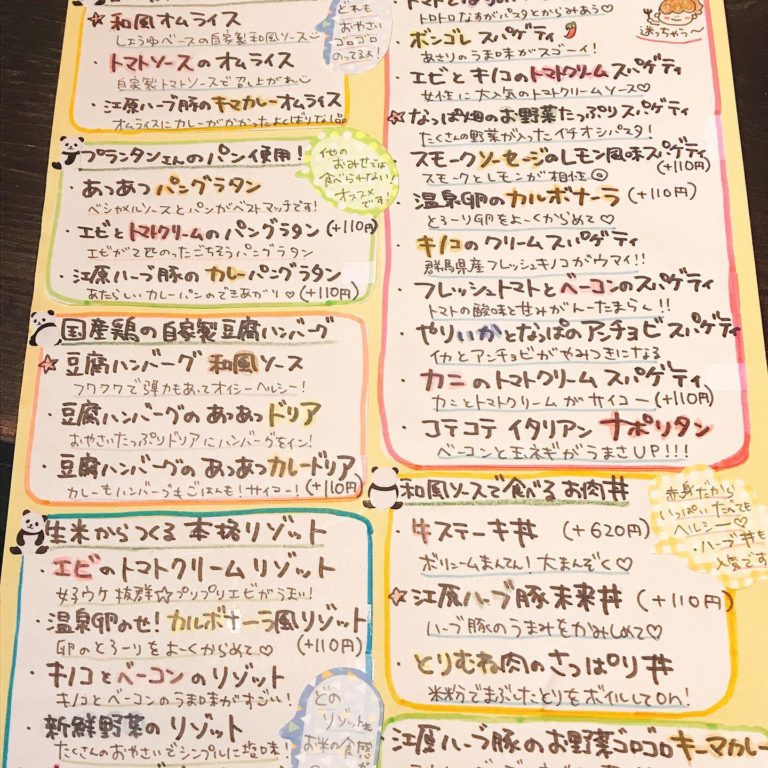 ☆和風オムライス
しょうゆベースの自家製和風ソース
・トマトソースのオムライス
自家製トマトソースで召し上がれ
・江原ハーブ豚のキマカレーオムライス
オムライスにカレーがかかったよくばりな品
どれも
おやさい
ゴロゴロ
のってるよ!
プランタンさんのパン使用!
他の
おみせでは
食べられない!
オススメ
です!
・あつあつパングラタン
ベシャメルソースとパンがベストマッチです!
・エビとトマトクリームのパングラタン(+110円)
エビが7匹のったごちそうパングラタン
・江原ハーブ豚のカレーパングラタン
あたらしいカレーパンのできあがり♡(+110円)
国産鶏の自家製豆腐ハンバーグ
☆豆腐ハンバーグ 和風ソース
フワフワで弾力もあってオイシーヘルシー!
・豆腐ハンバーグのあつあつドリア
おやさいたっぷりドリアにハンバーグをイン!
・豆腐ハンバーグのあつあつカレードリア
カレーもハンバーグもごはんも!サイコー!(+110円)
生米からつくる本格リゾット
・エビのトマトクリームリゾット
女子ウケ抜群☆プリプリエビがうまい!
・温泉卵のせ!カルボナーラ風リゾット
卵のとろーりをよーくからめて♡(+110円)
・キノコとベーコンのリゾット
キノコとベーコンのうま味がすごい!
・新鮮野菜のリゾット
たくさんのおやさいでシンプルに塩味!
どの
リゾットも
お米の食感
迷っちゃう〜
トロトロなすがパスタとからみあう♡
ボンゴレ スパゲティ
あさりのうま味がスゴーイ!
・エビとキノコのトマトクリームスパゲティ
女性に大人気のトマトクリームソース♡
☆なっぱ畑のお野菜たっぷりスパゲティ
たくさんの野菜が入ったイチオシパスタ!
・スモークソーセージのレモン風味スパゲティ
スモークとレモンが相性◎(+110円)
・温泉卵のカルボナーラ(+110円)
とろーり卵をよーくからめて♡
・キノコのクリームスパゲティ
群馬県産フレッシュキノコがウマイ!!
・フレッシュトマトとベーコンのスパゲティ
トマトの酸味と甘みがんーたまらん!!
・やりいかとなっぱのアンチョビスパゲティ
イカとアンチョビがやみつきになる
・カニのトマトクリームスパゲティ
カニとトマトクリームがサイコー(+110円)
・コテコテイタリアンナポリタン
ベーコンと玉ネギがうまさUP!!!
和風ソースで食べるお肉丼
赤身だから
いっぱいたべても
ヘルシー♡
・ハーブ丼も
人気です
・牛ステーキ丼 (+620円)
ボリュームまんてん!大まんぞく♡
☆江原ハーブ豚未来丼(+110円)
ハーブ豚のうまみをかみしめて♡
・とりむね肉のさっぱり丼
米粉でまぶしたとりをボイルしてon!
江原ハーブ豚のお野菜ゴロゴロキーマカレー